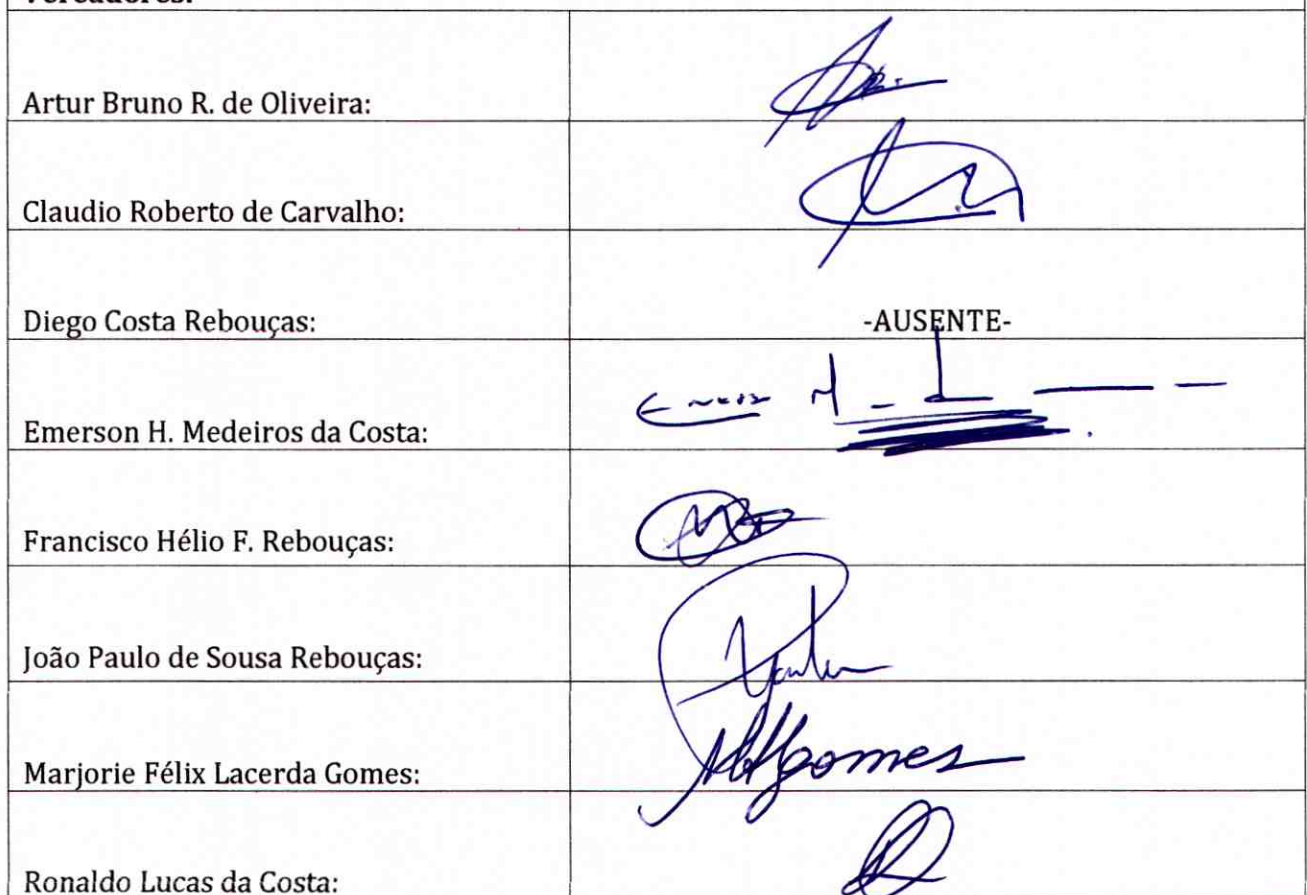 Vereadores:
Artur Bruno R. de Oliveira:
Claudio Roberto de Carvalho:
Diego Costa Rebouças: -AUSENTE-
Emerson H. Medeiros da Costa:
Francisco Hélio F. Rebouças:
João Paulo de Sousa Rebouças:
Marjorie Félix Lacerda Gomes: MFLgomes
Ronaldo Lucas da Costa: